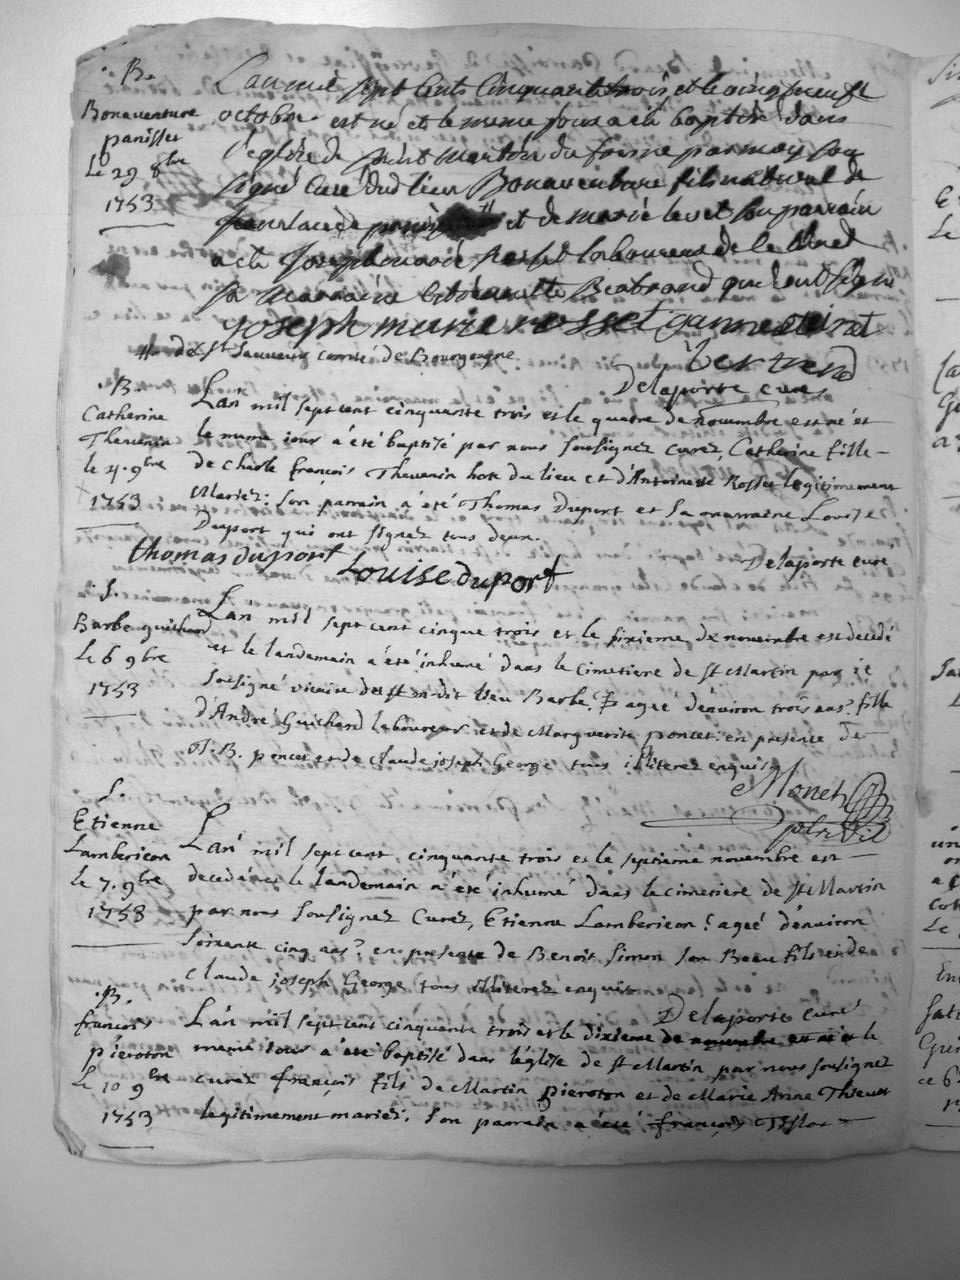 .B.
Bonaventure
panisset
Le 29 8bre
1753
L'an mil sept cents cinquante trois et le vingt neuf
octobre est né et le meme jour a eté baptisé dans
l'eglise de saint martin du par moy sou
signé Curé dud lieu Bonaventure fils naturel de
et de marie son parrain
a eté Joseph marie Rosset laboureur de
sa marraine Bertrand qui ont signé
joseph marie rosset
bertrend
# de St Sauveur comté de Bourgougne
Delaporte curé
.B.
Catherine
Thevenin
le 4. 9bre
1753
Lan mil sept cent cinquante trois et le quatre de novembre est né et
le mume iour à été baptisé par nous Soussignez curez, Catherine fille
de Charle françois Thevenin hote du lieu et d'Antoinette Rosset legitimement
Mariez: son parrain à été Thomas Duport et sa marraine Louise
Duport qui ont signez tous deux.
thomas duport Louise duport
Delaporte curé
.S.
Barbe guichard
le 6 9bre
1753
Lan mil sept cent cinque trois et le sixieme de novembre est decedé
et le landemain a été inhumé dans le cimetiere de St Martin par je
Sousigné vicaire dud st m dit lieu Barbe, agéé d'environ trois ans? fille
d'André Guichard laboureur et de Marguerite poncet: en presence de
J. B. poncet et de Claude joseph George tous illiterez enquis
Monet
.S.
Etienne
Lambericon
le 7. 9bre
1753
Lan mil sept cent cinquante trois et le septieme novembre est
decedé et le landemain a été inhumé dans le cimetiere de St Martin
par nous Sousignez Curez, Etienne Lambericon: ageé d'environ
soixante cinq ans? en presence de Benoit Simon son Beau fils et de
Claude joseph George tous illiterez enquis
Delaporte curé
.B.
francois
pieroton
Le 10 9bre
1753
Lan mil sept cent cinquante trois et le dixieme de novembre est né et le
meme iour a été baptisé dans l'église de st Martin par nous soussignez
curez françois fils de Martin pieroton et de Marie Anne Thevenet
legitimement mariez. Son parrain a été françois